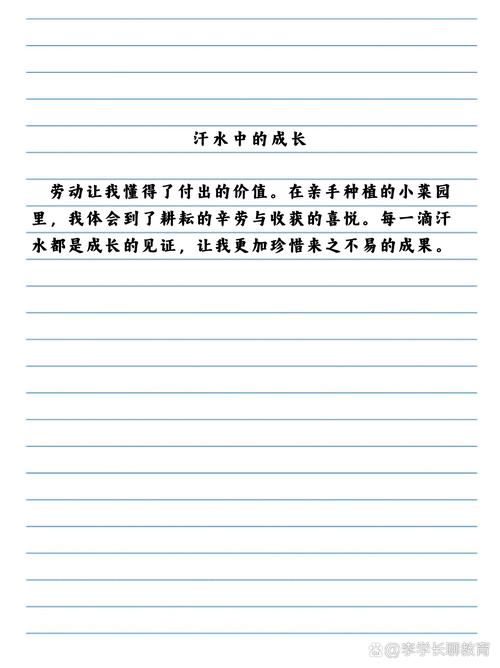 汗水中的成长
劳动让我懂得了付出的价值。在亲手种植的小菜园
里，我体会到了耕耘的辛劳与收获的喜悦。每一滴汗
水都是成长的见证，让我更加珍惜来之不易的成果。
@李学长聊教育